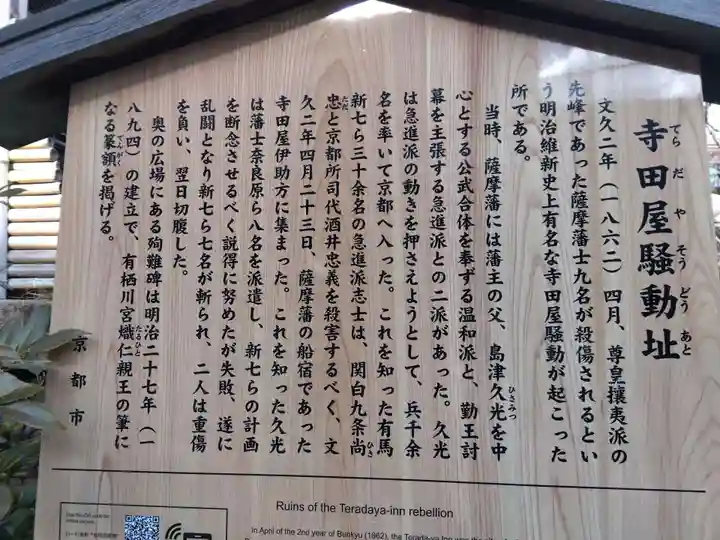 寺田屋騒動址
てらだやそうどうあと
文久二年（一八六二）四月、尊皇攘夷派の
先峰であった薩摩藩士九名が殺傷されるとい
う明治維新史上有名な寺田屋騒動が起こった
所である。
当時、薩摩藩には藩主の父、島津久光を中
ひさみつ
心とする公武合体を奉ずる温和派と、勤王討
幕を主張する急進派との二派があった。久光
は急進派の動きを押さえようとして、兵千余
名を率いて京都へ入った。これを知った有馬
新七ら三十余名の急進派志士は、関白九条尚
ひさ
忠と京都所司代酒井忠義を殺害するべく、文
ただ
久二年四月二十三日、薩摩藩の船宿であった
寺田屋伊助方に集まった。これを知った久光
は藩士奈良原ら八名を派遣し、新七らの計画
を断念させるべく説得に努めたが失敗、遂に
乱闘となり新七ら七名が斬られ、二人は重傷
を負い、翌日切腹した。
奥の広場にある殉難碑は明治二十七年（一
八九四）の建立で、有栖川宮熾仁親王の筆に
たるひと
なる篆額を掲げる。
てんがく
京都市
Ruins of the Teradaya-inn rebellion
In April of the 2nd year of Bunkyu (1862), the Terada-ya Inn was the